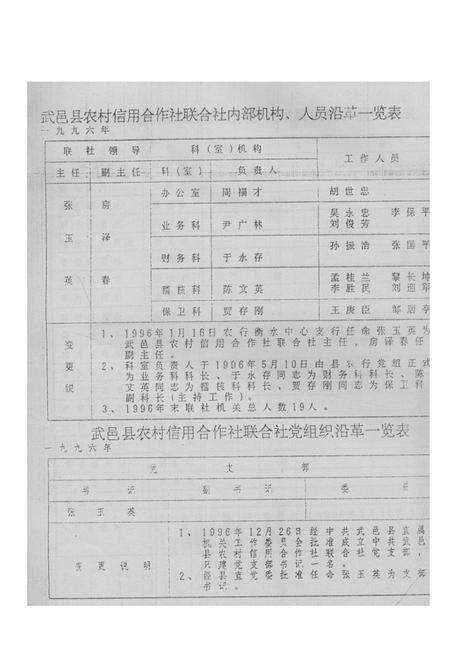 武邑县农村信用合作社联合社内部机构、人员沿革一览表
一九九六年
联社领导 科(室)机构 工作人员
主任 副主任 科(室) 负责人
张玉英 房泽春 办公室 周振才 胡世忠
业务科 尹广林 吴永忠 李保平
刘俊芳
财务科 于永存 孙振浩 张国平
稽核科 陈文英 孟桂兰 黎长坤
李胜民 刘迎军
保卫科 贾存刚 王庚臣
变更说
1、1996年1月16日农行衡水中心支行任命张玉英为
武邑县农村信用合作社联合社主任,房泽春任
副主任。
2、科室负责人于1996年5月10日由县农行党组正式
为业务科科长、于永存同志为财务科科长、陈
文英同志为稽核科科长、贾存刚同志为保卫科
副科长(主持工作)。
3、1996年末联社机关总人数19人。
武邑县农村信用合作社联合社党组织沿革一览表
一九九六年
党支部
书记 副书记 委员
张玉英
变更说明
1、1996年12月26日经中共武邑县直属
机关工作委员会批准成立中共武邑
县农村信用合作社联合社党支部,
只设党支部书记一名。
2、经县直党委批准任命张玉英为支部
书记。